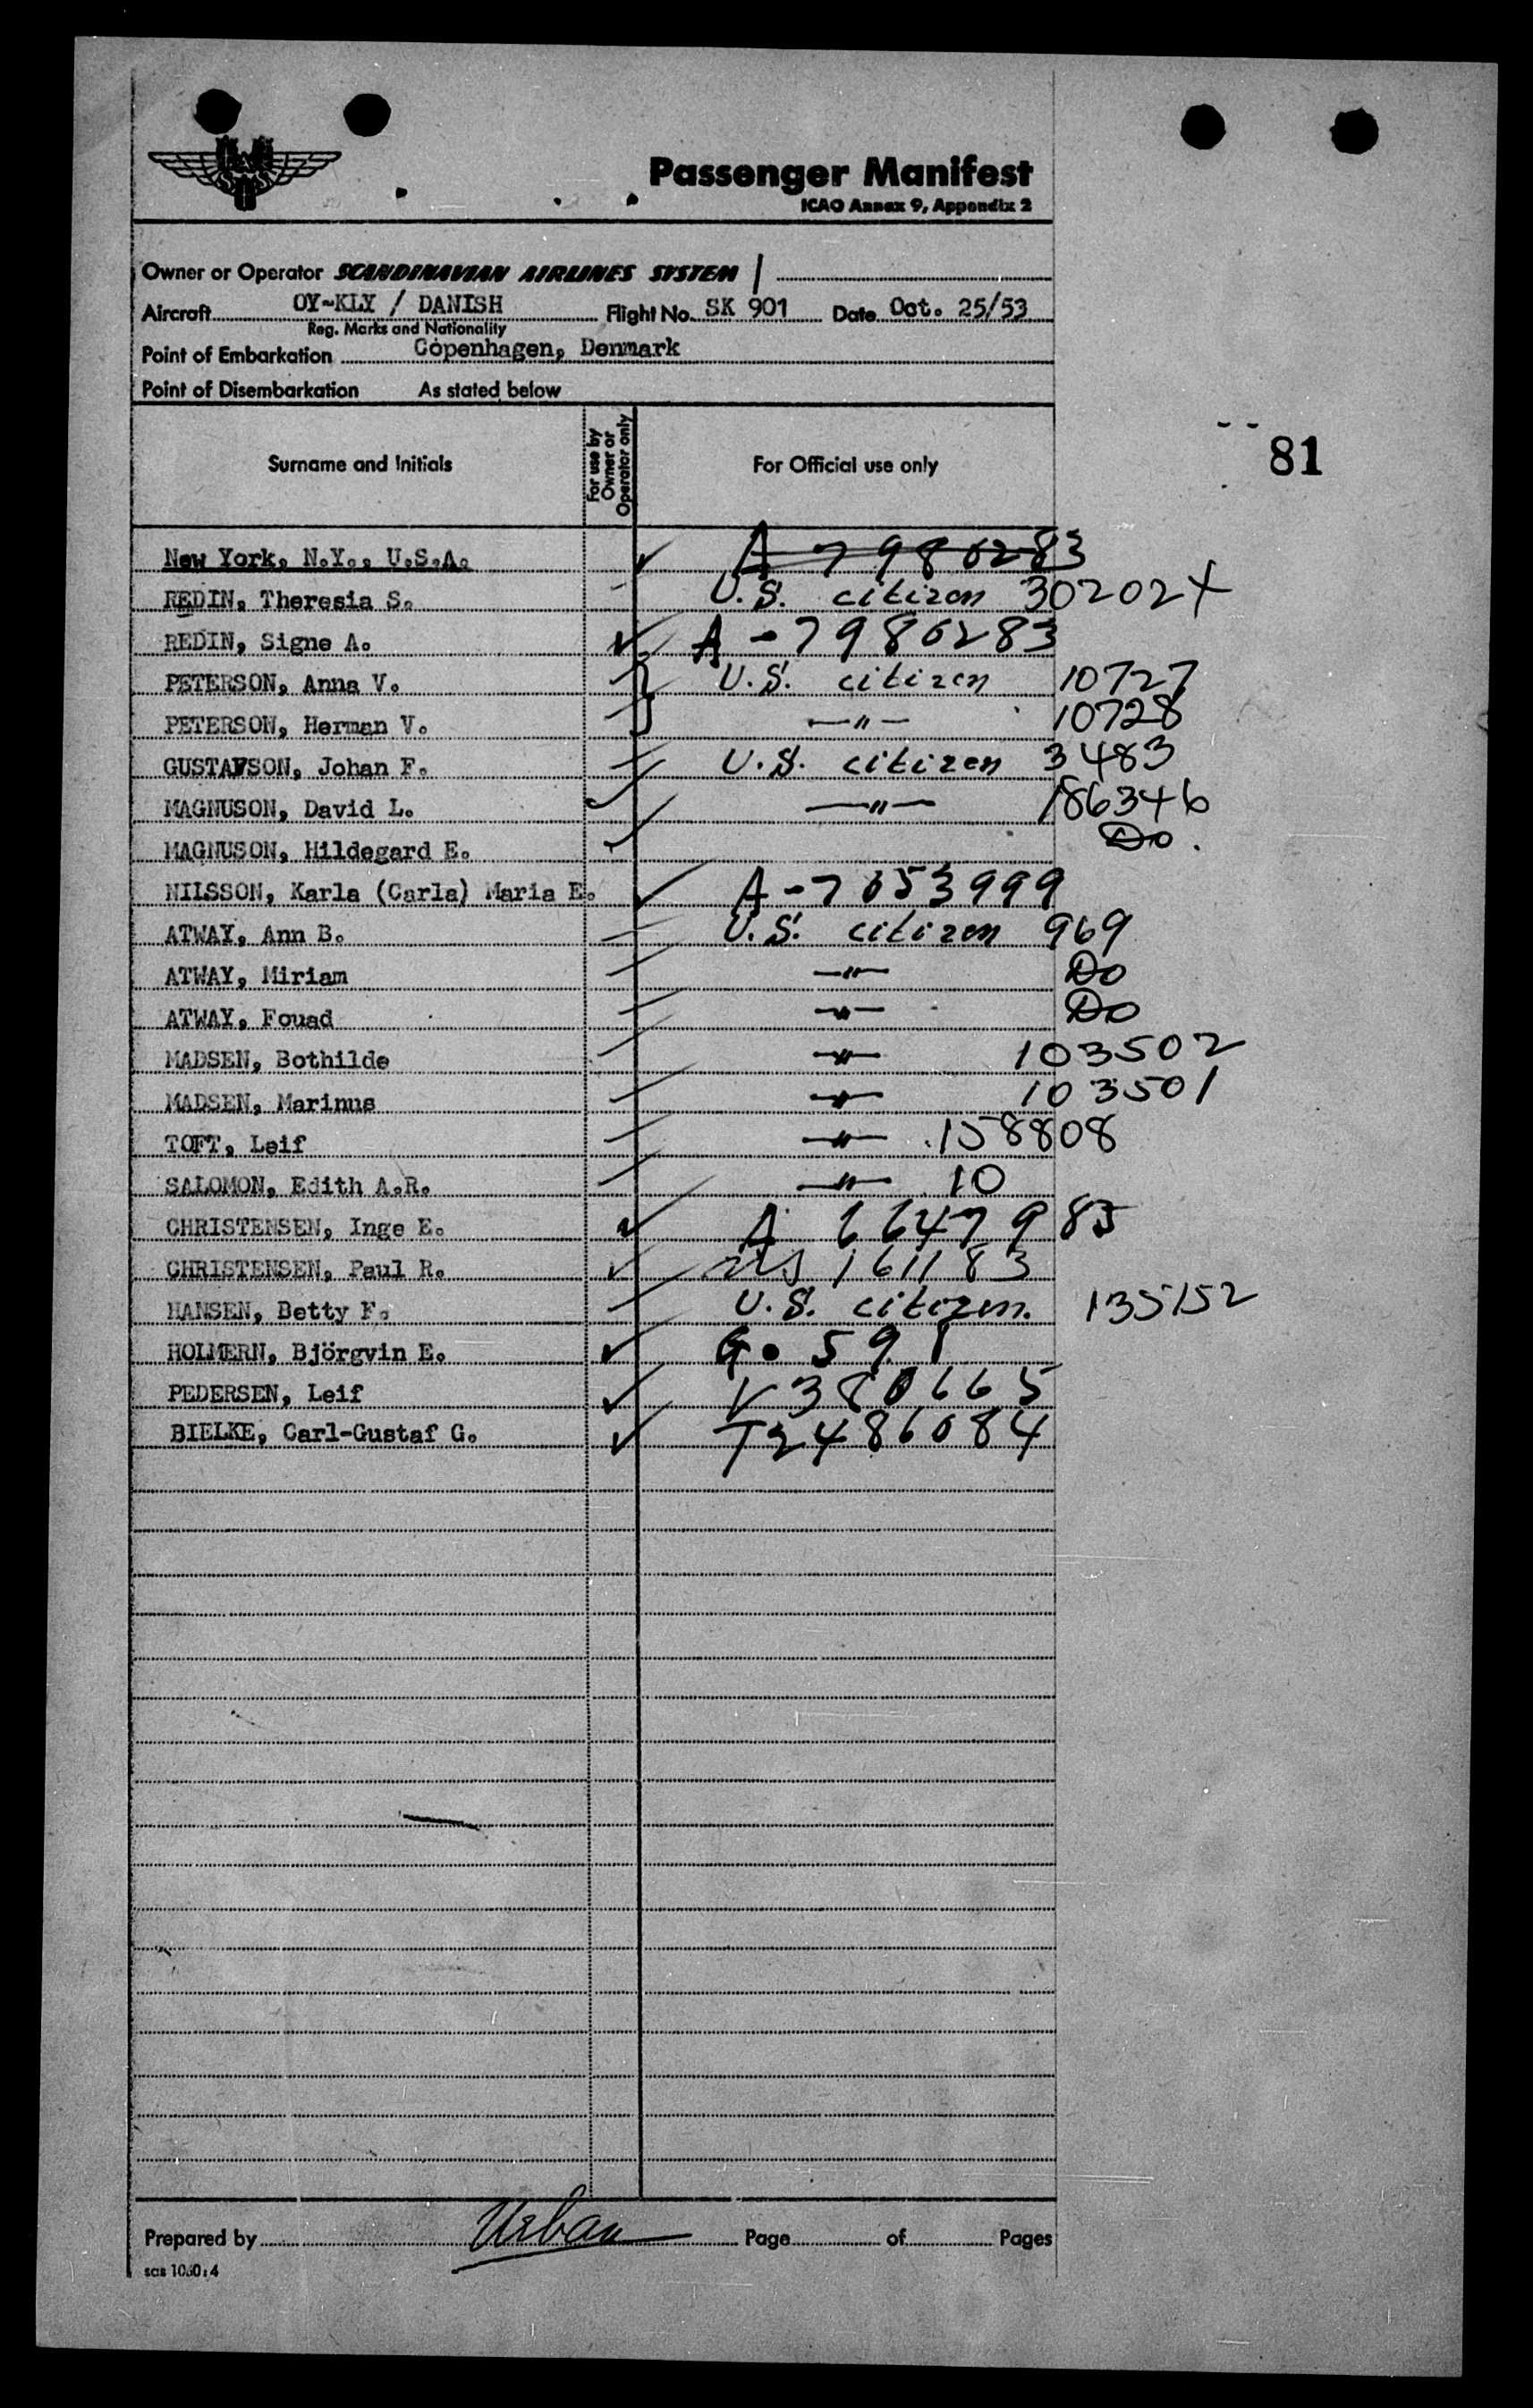 Passenger Manifest
ICAO Annex 9, Appendix 2
Owner or Operator SCANDINAVIAN AIRLINES SYSTEM
Aircraft OY-KLY / DANISH Flight No. SK 901 Date Oct. 25/53
Reg. Marks and Nationality
Point of Embarkation Copenhagen, Denmark
Point of Disembarkation As stated below
Surname and Initials For use by Owner or Operator only For Official use only
81
New York, N.Y., U.S.A. A 7986283
REDIN, Theresia S. U.S. citizen 302024
REDIN, Signe A. A-7986283
PETERSON, Anna V. U.S. citizen 10727
PETERSON, Herman V. —"— 10728
GUSTAFSON, Johan F. U.S. citizen 3483
MAGNUSON, David L. —"— 186346
MAGNUSON, Hildegard E. Do.
NILSSON, Karla (Carla) Maria E. A-7053999
ATWAY, Ann B. U.S. citizen 969
ATWAY, Miriam —"— Do
ATWAY, Fouad —"— Do
MADSEN, Bothilde —"— 103502
MADSEN, Marinus —"— 103501
TOFT, Leif —"— 158808
SALOMON, Edith A.R. —"— 10
CHRISTENSEN, Inge E. A 6647985
CHRISTENSEN, Paul R. 161183
HANSEN, Betty F. U.S. citizen. 135152
HOLMERN, Björgvin E. 59
PEDERSEN, Leif V380665
BIELKE, Carl-Gustaf G. T2486084
Prepared by Urban Page of Pages
sas 1060:4